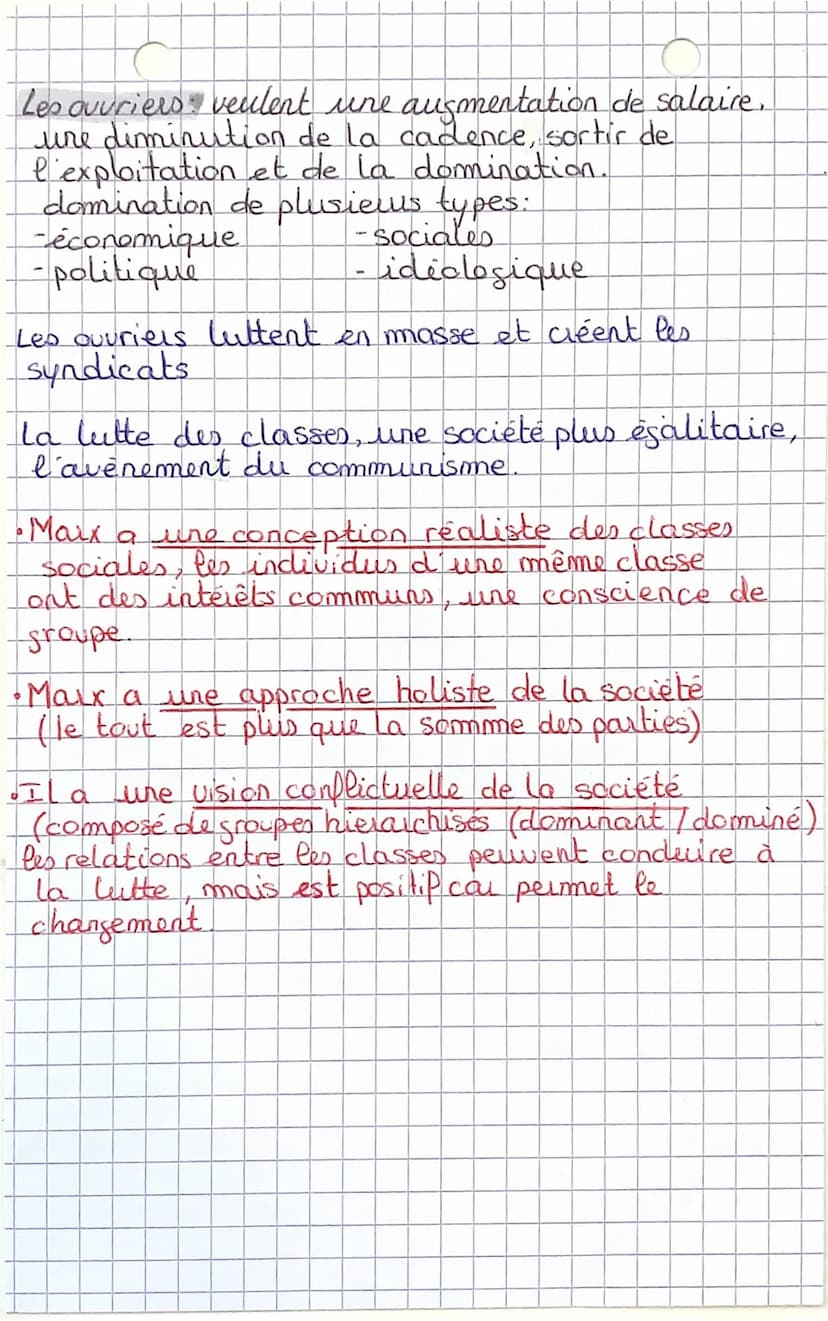 Les ouvriers: veulent une augmentation de salaire,
une diminution de la cadence, sortir de
l'exploitation et de la domination.
domination de plusieurs types:
-économique -sociales
-politique -idéologique
Les ouvriers luttent en masse et créent les
syndicats
La lutte des classes, une société plus égalitaire,
l'avènement du communisme.
•Marx a une conception réaliste des classes
sociales, les individus d'une même classe
ont des intérêts communs, une conscience de
groupe.
•Marx a une approche holiste de la société
(le tout est plus que la somme des parties)
•Il a une vision conflictuelle de la société
(composé de groupes hierarchisés (dominant / dominé)
les relations entre les classes peuvent conduire à
la lutte, mais est positif car permet le
changement.